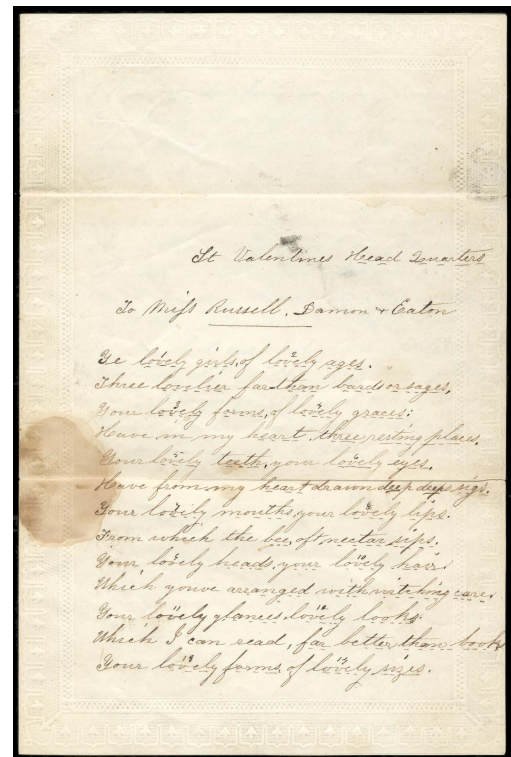 St Valentines Head Quarters
To Miss Russell, Damon & Eaton
Ye lovely girls, of lovely ages.
Three lovelier far than bards or sages,
Your lovely forms, of lovely graces;
Have in my heart, three resting places.
Your lovely teeth, your lovely eyes.
Have from my heart drawn deep deep sigs.
Your lovely mouths, your lovely lips.
From which the bee, oft nectar sips.
Your lovely heads, your lovely hair.
Which youve arranged with witching care.
Your lovely glances, lovely looks.
Which I can read, far better than books
Your lovely forms, of lovely sizes.